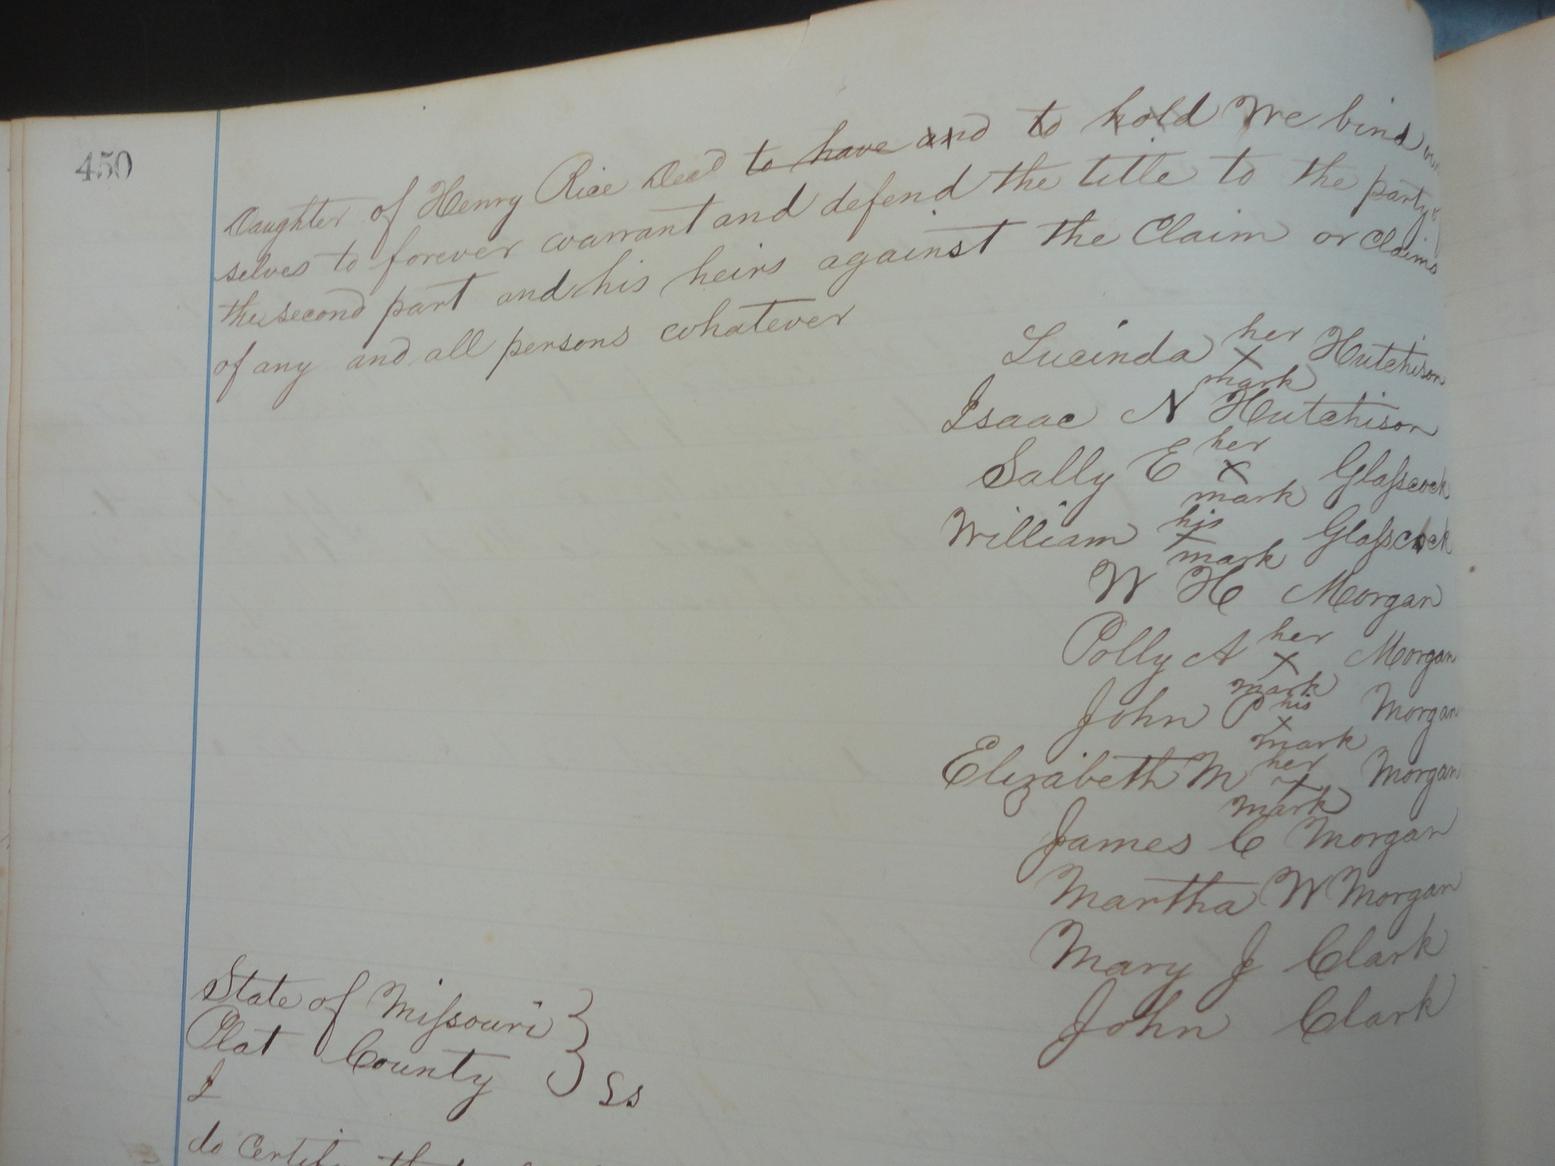 450
Daughter of Henry Rice Decd to have and to hold We bind our
selves to forever warrant and defend the title to the party of
the second part and his heirs against the Claim or Claims
of any and all persons whatever
Lucinda her x mark Hutchison
Isaac N Hutchison
Sally E her x mark Glasscock
William his x mark Glasscock
W H Morgan
Polly A her x mark Morgan
John P his x mark Morgan
Elizabeth M her x mark Morgan
James C Morgan
Martha W Morgan
Mary J Clark
John Clark
State of Missouri }
Plat County } Ss
I
do certify that